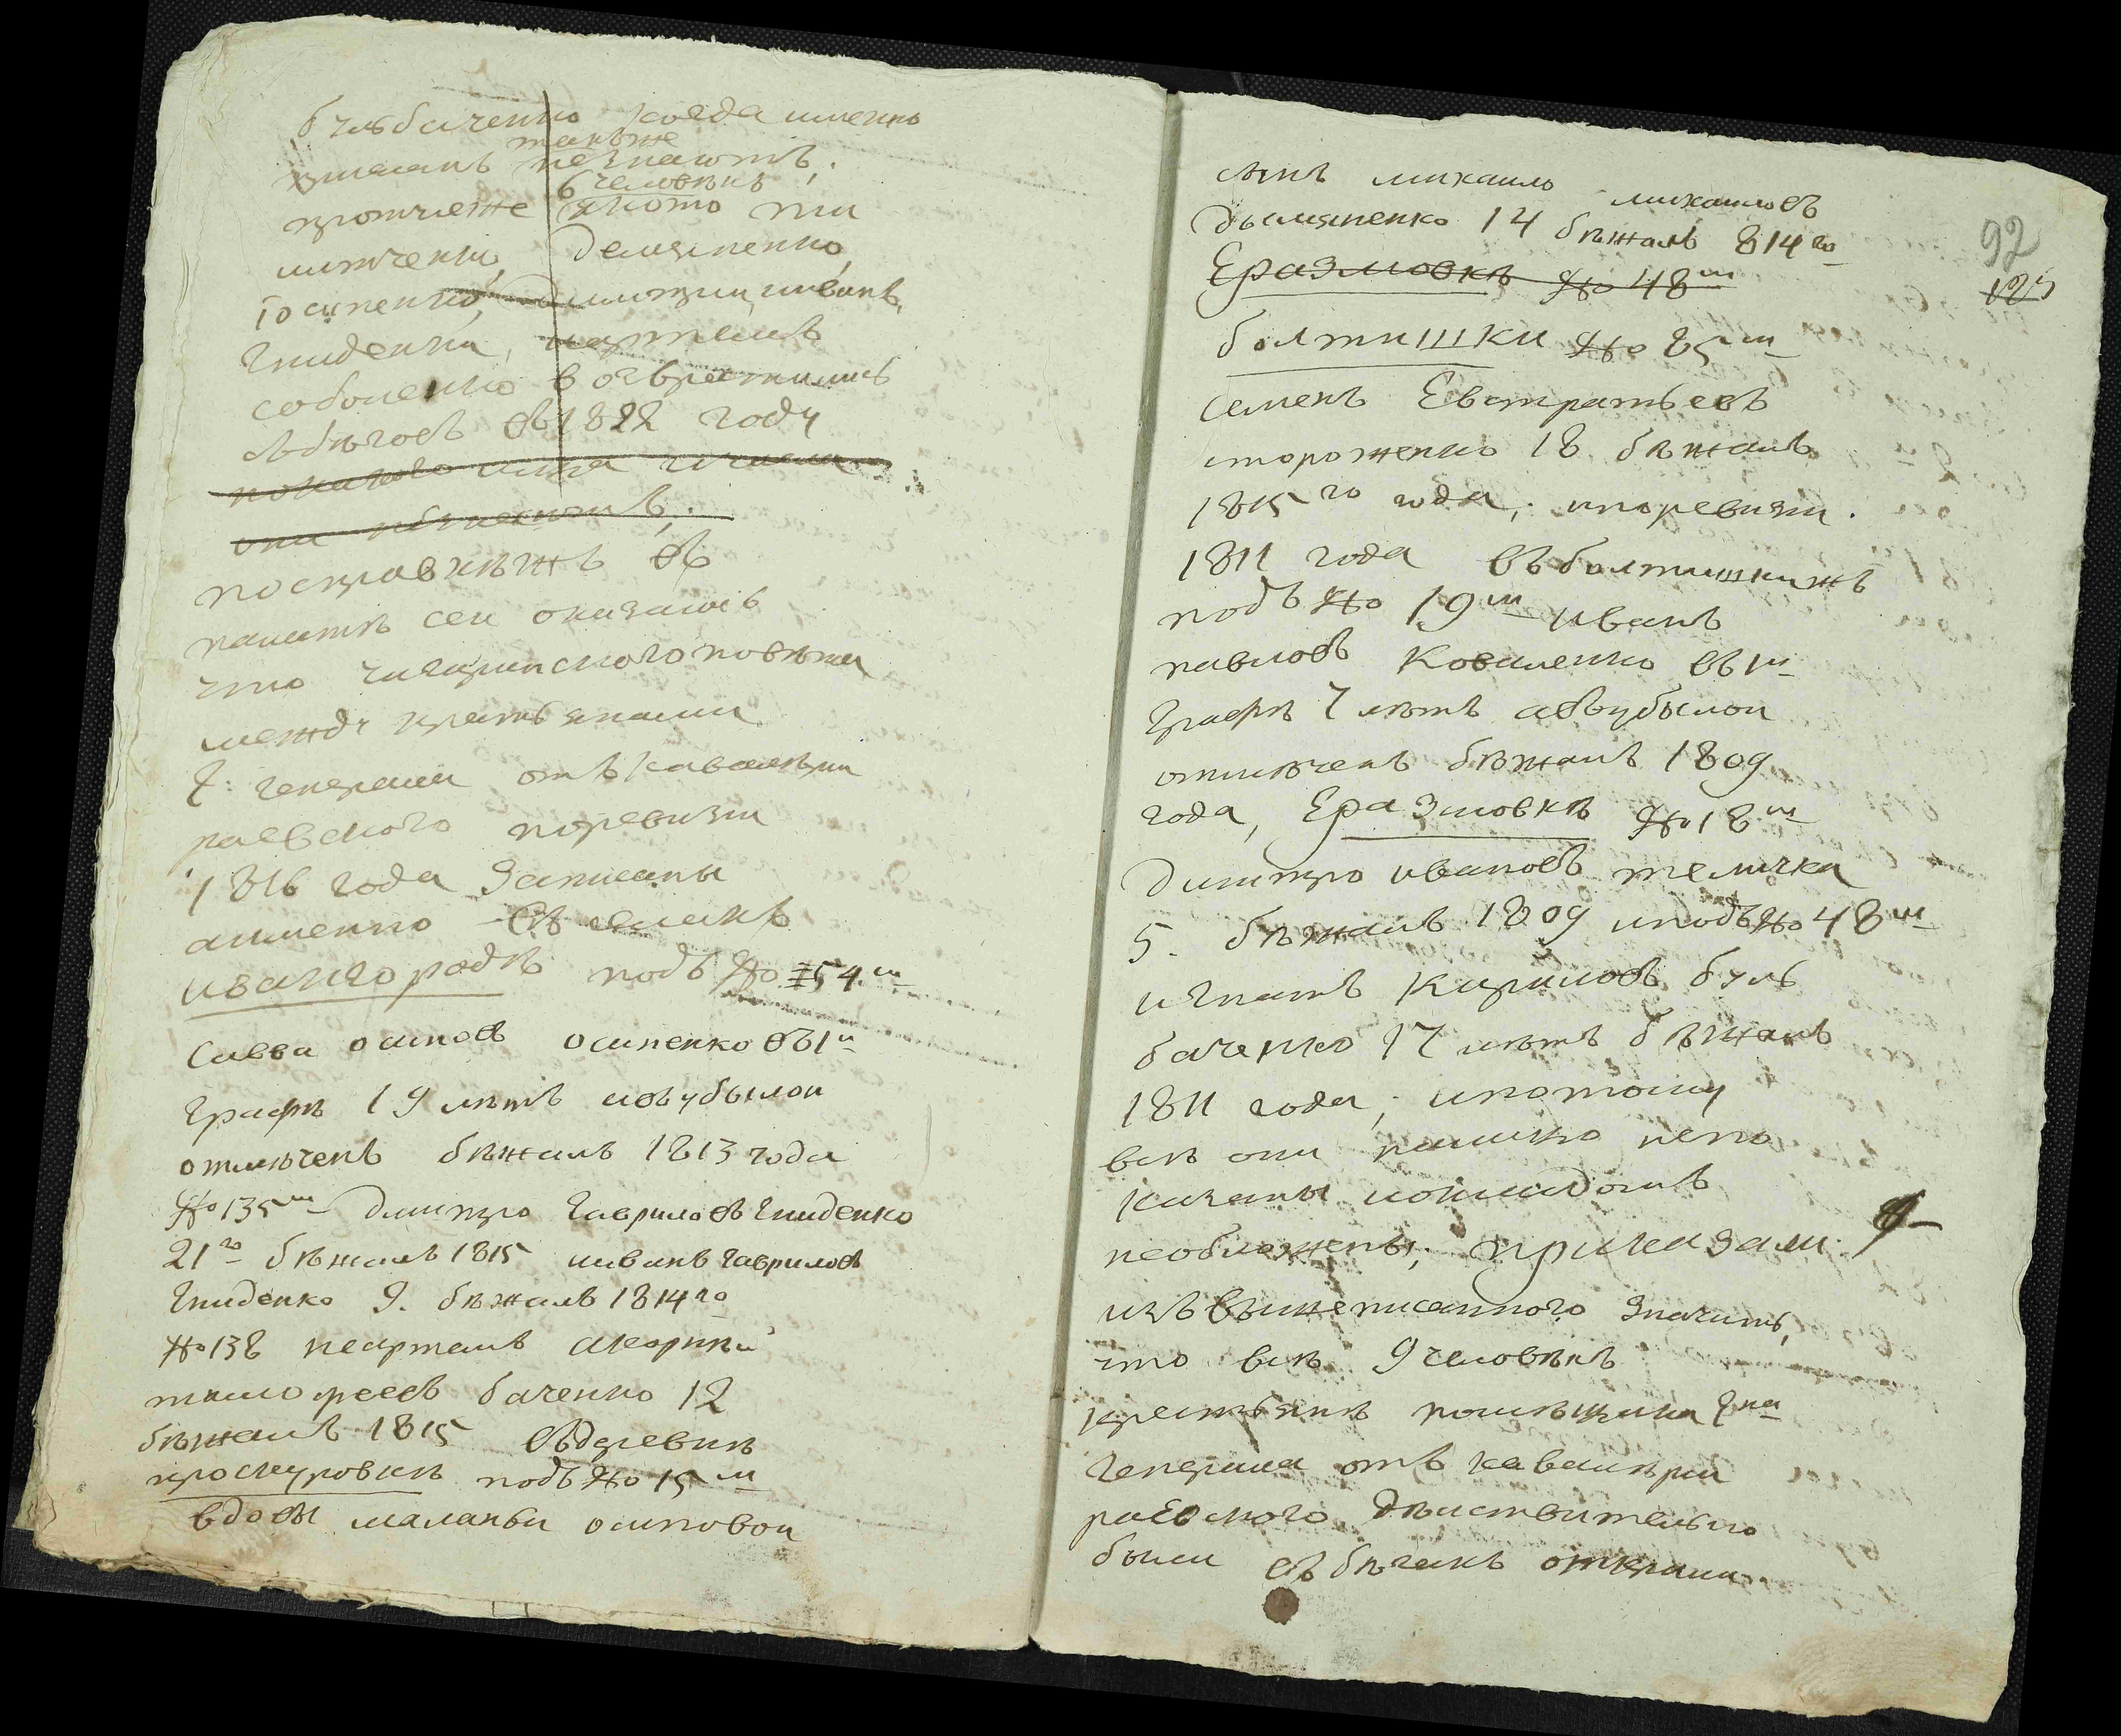 бульбаченко когда именно
также
незнаютъ;
6 человѣкъ
протчие же якото ти
мтченко, Демяненко,
іосипенко, Дмитрии, иванъ,
Гниденки, иартемъ
собоченко возвратились
сбѣговъ въ 1822 году
покакого числа
они незнаютъ;
посправкѣжъ въ
палатѣ сеи оказалось
что чигиринского повѣта
между крестьянами
Г: генерала отъ кавалѣрии
раевского поревизи
1816 года записаны
аименно въ селахъ
ивангородѣ подъ № 54м
савва осиповъ осипенко въ 1й
графѣ 19 лѣтъ ивъубылои
отмѣченъ бѣжалъ 1813 года
№ 135м Дмитро гавриловъ Гниденко
21го бѣжалъ 1815 ииванъ гавриловъ
Гниденко 9. бѣжалъ 1814го
№ 138 неартемъ акорнѣи
тимофеевъ баченко 12
бѣжалъ 1815 въдеревнѣ
проскуровкѣ подъ № 15м
вдовы маланьи осиповои
сынъ михаило михаиловъ
Дымяненко 14 бѣжалъ 814го
Еразмовкѣ № 48м
болтишки № 85м
семенъ Евстратьевъ
стороженко 18 бѣжалъ
1815го года, ипоревизи.
1811 года въболтишкижъ
подъ № 19м иванъ
павловъ Коваленко въ 1й
графѣ 7 лѣтъ авъубылои
отмѣченъ бѣжалъ 1809
года, Еразмовкѣ № 18м
Дмитро ивановъ теличка
5. бѣжалъ 1809 иподъ № 48м
игнатъ Кириловъ буль
баченко 17 лѣтъ бѣжалъ
1811 года; ипотому
всѣ они непо
казаны иокладомъ
необложены; приказали
изъ вышеписанного значитъ,
что всѣ 9 человѣкъ
крестьянъ помѣщика Гна
генерала отъ кавалѣрии
раевского дѣиствительно
были въ бѣгахъ открыли
92
125